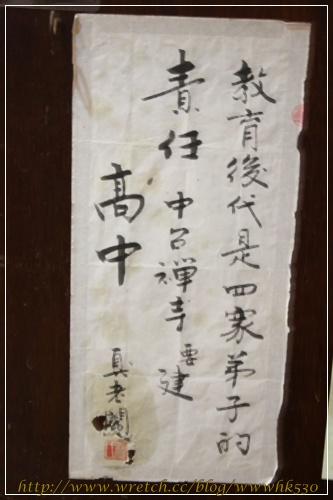 教育後代是四衆弟子的
責任 中台禪寺要建
高中
http://www.wretch.cc/blog/wwwhk530